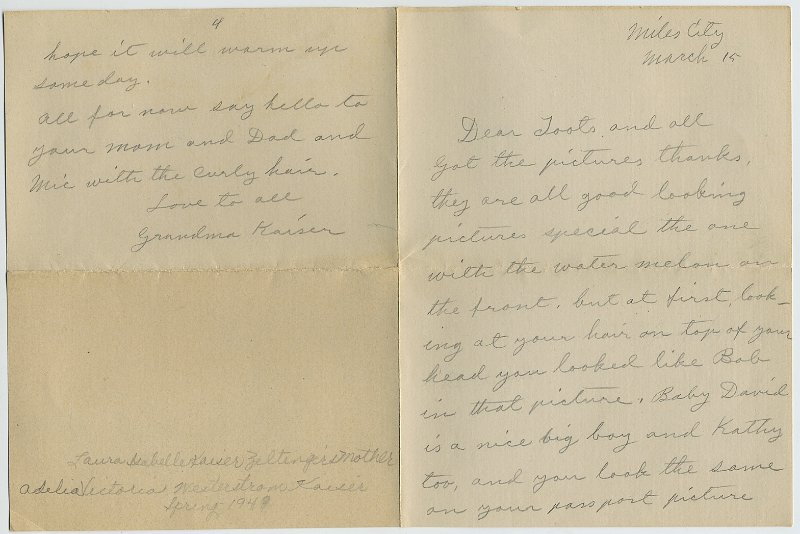 4
hope it will warm up
some day.
All for now say hello to
your mom and Dad and
Mic with the curly hair.
Love to all
Grandma Kaiser
Laura Isabelle Kaiser Zeltinger's Mother
Adelia Victoria Westerstrom Kaiser
Spring 194
Miles City
March 15
Dear Toots and all
Got the pictures thanks,
they are all good looking
pictures special the one
with the water melon on
the front. but at first look-
ing at your hair on top of your
head you looked like Bob
in that picture. Baby David
is a nice big boy and Kathy
too, and you look the same
on your passport picture